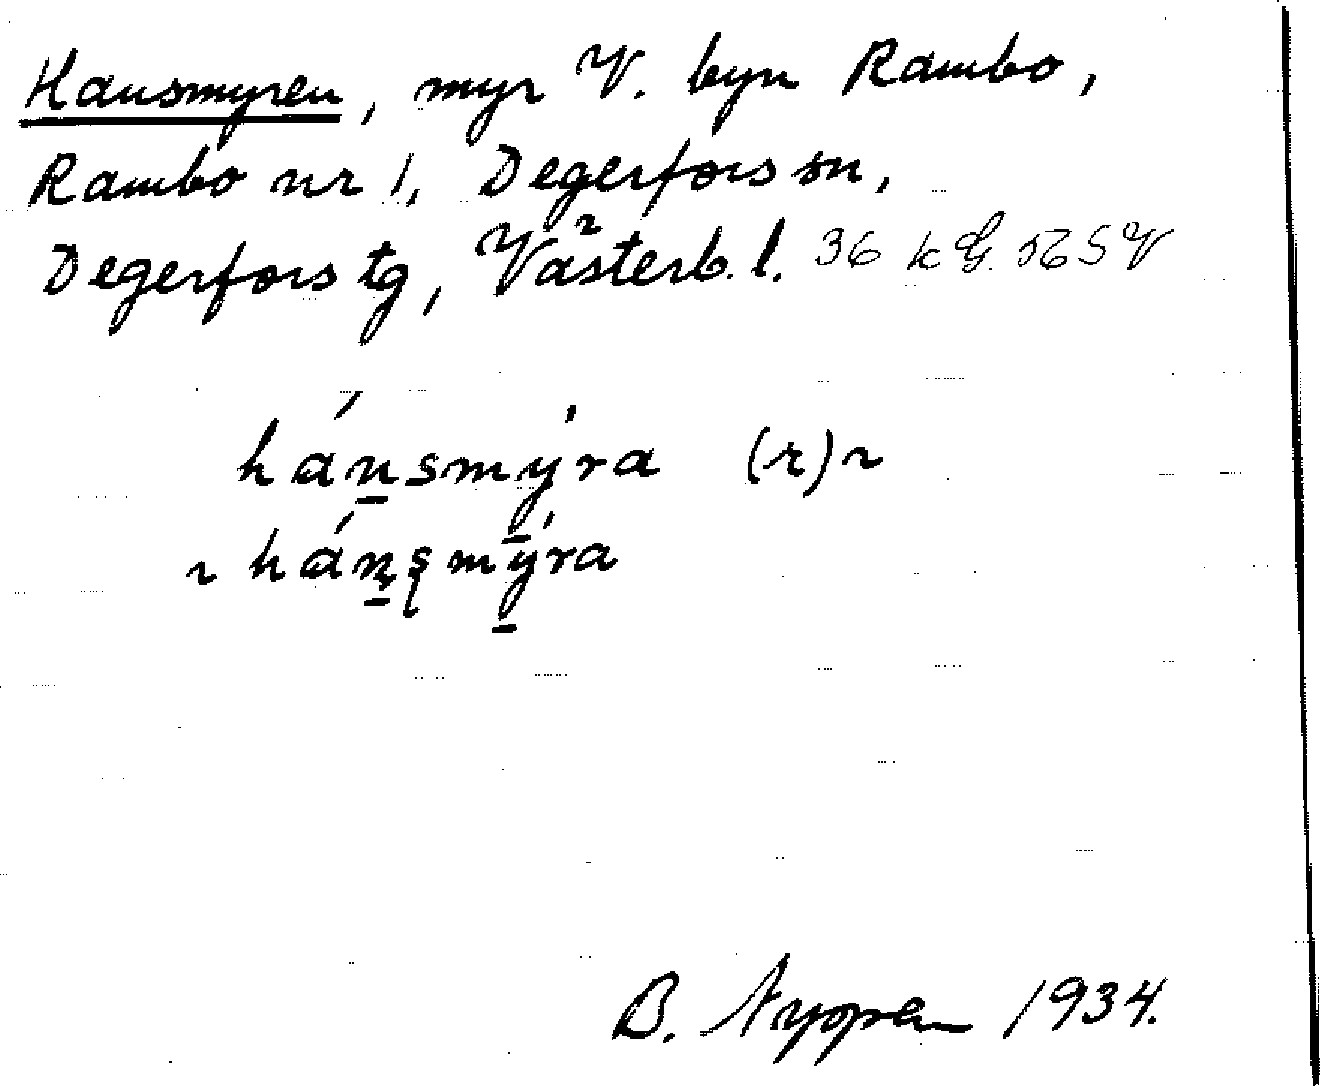 Hansmyren, myr V. byn Rambo,
Rambo nr 1, Degerfors sn,
Degerfors tg, Västerb. l. 36 k G. 565 V
hánsmýra (r) ~
~ hánsmýra
B. Nyopen 1934.